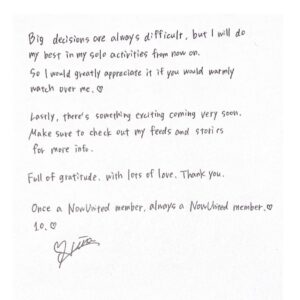 Big decisions are always difficult, but I will do
my best in my solo activities from now on.
So I would greatly appreciate it if you would warmly
watch over me. ♡
Lastly, there's something exciting coming very soon.
Make sure to check out my feeds and stories
for more info.
Full of gratitude, with lots of love, Thank you.
Once a NowUnited member, always a NowUnited member.♡
10.♡